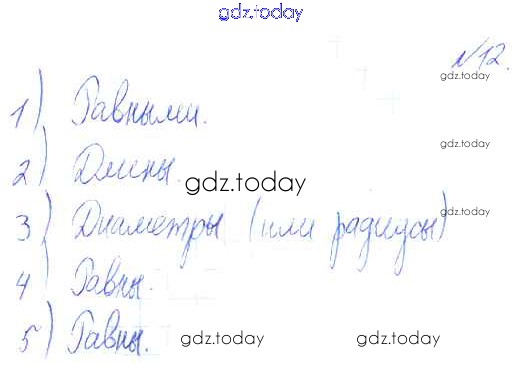 gdz.today
№12.
gdz.today
1) Равными.
gdz.today
2) Длины.
gdz.today
3) Диаметры (или радиусы)
gdz.today
4) Равны.
5) Равны.
gdz.today gdz.today